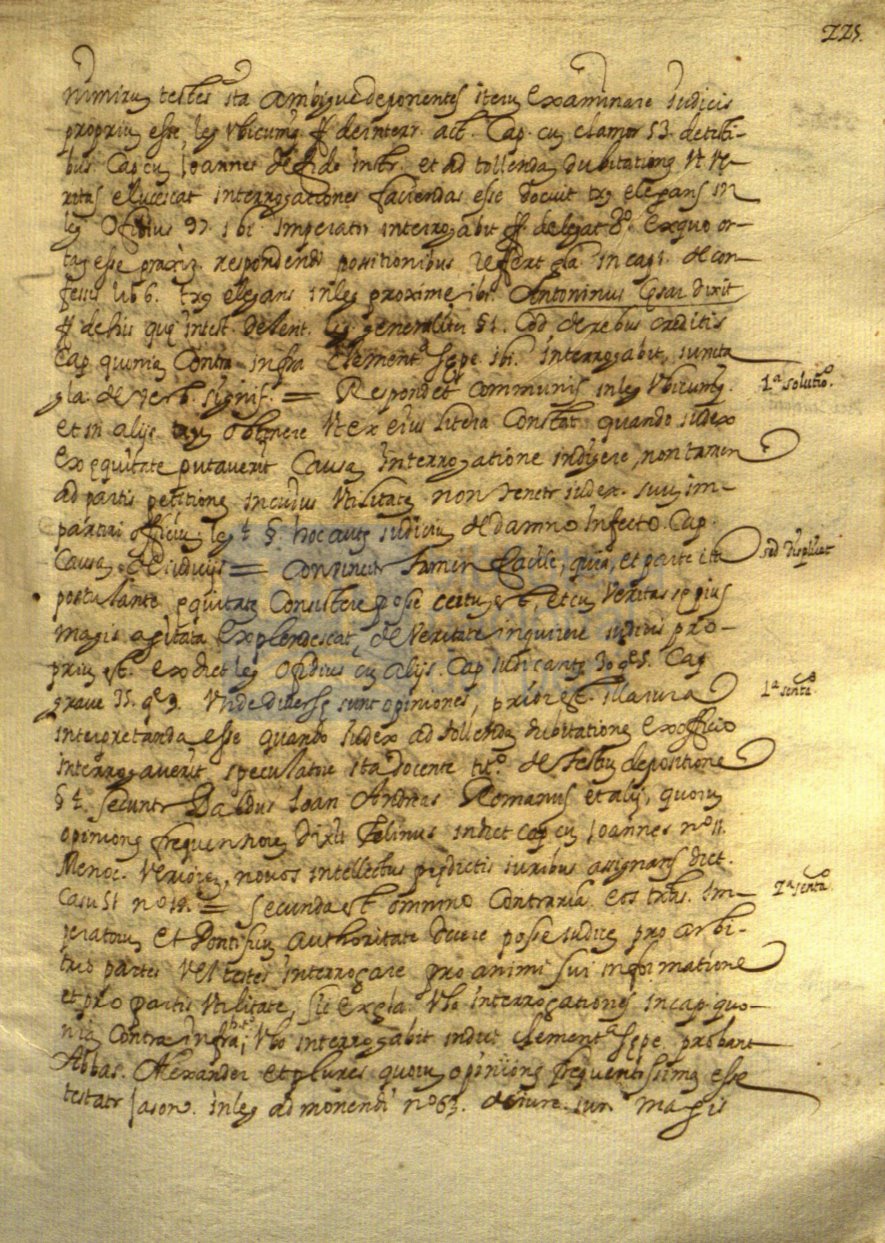 225.
nimirum testes ita ambigue deponentes iterum examinare Iudicis
proprium esse, leg Vbicumq ff de interr. act. Cap. cum clamor 53. de testi-
bus Cap cum Joannes de fide Instr. et ad tollendam dubitationem Vt Ve-
ritas elucescat interrogationes faciendas esse docuit tex elegans in
leg Ofidius 97. ibi Imperator interrogabit ff. de legat 2º. Ex quo or-
tam esse praxim respondendi positionibus refert gla. in cap 1. de con-
fessis lib 6. tex elegans in leg proxime ibi. Antoninus Cesar dixit
ff de his que in test. delent. leg generaliter § 1. Cod de rebus creditis
Cap quoniam Contra infra Clementª sepe ibi. interrogabit, iuncta
gla. de Verb. signif. = Respondet Communis in leg Vbicumq.
1ª solutio.
et in alijs obtinere Vt ex eius litera Constat quando iudex
ex equitate putaverit Causam interrogatione indigere, non tamen
ad partis petitionem in cuius Vtilitatem non tenetr iudex suum im-
partiri officium, leg 4 § hoc autem iudicium de damno infecto Cap.
Causam de iudicijs = Convincitr tamen facile, quia, et parte ita
sed displicet
postulante equitatem Consistere posse certum est, et cum Veritas sepius
magis agitata Explendescat, de Veritate inquirere iudicis pro-
prium est. ex dict leg Ofidius cum alijs. Cap iudicantem 30 q 5. Cap
grave 35. q 9. Vnde diverse sunt opiniones, prior est illa iura
1ª sentª
interpretanda esse quando Iudex ad tollendam dubitationem ex officio
interrogaverit speculatore ita docente titº. de testium depositione
§ 1. secuntr Baldus Ioan Andreas Romanus et alij, quorum
opinionem frequentiorem dixit Felinus in dict cap cum Joannes nº 11.
Menoc. Veriorem, novos intellectus predictis iuribus assignans dict.
Casu 51 nº 18. = Secunda est omnino Contraria. eos Im-
2ª sentª
peratorum et Pontificum authoritate docere posse iudicem pro arbi-
trio partes Vel testes interrogare pro animi sui informatione
et pro partis Vtilitate, sic ex gla. Vbo interrogationes in cap quo-
niam Contra infra, Vbo interrogabit in dict clementª sepe. probant
Abbas. Alexander et plures quorum opinionem frequentissimam esse
testatr Jason. in leg admonendi nº 63. de iure iur. magis